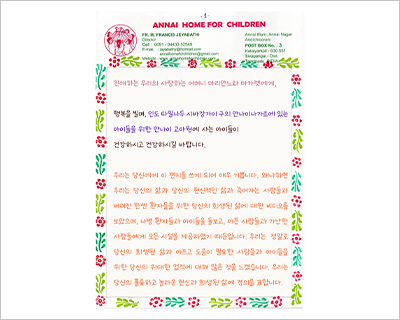 - 1 -
ANNAI HOME FOR CHILDREN
FR. M. FRANCIS JEYABATH
Director
Cell : 0091 - 94433 52548
Annai Illam, Annai Nagar
POST BOX No. : 3
친애하는 우리의 사랑하는 어머니 마리안느와 마가렛에게,
행복을 빌며, 인도 타밀나두 시바강가이 구의 안나이나가르에 있는
아이들을 위한 안나이 고아원에 사는 아이들이
건강하시고 건강하시길 바랍니다.
우리는 당신에게 이 편지를 쓰게 되어 매우 기쁩니다. 왜냐하면
우리는 당신의 삶과 당신의 헌신적인 삶과 죽어가는 사람들과
버려진 한센 환자들을 위한 당신의 희생된 삶에 대한 비디오를
보았으며, 나병 환자들과 아이들을 돌보고, 아픈 사람들과 가난한
사람들에게 모든 시설을 제공하였기 때문입니다. 우리는 정말로
당신의 희생된 삶과 아프고 도움이 필요한 사람들과 아이들을
위한 당신의 위대한 업적에 대해 많은 것을 느꼈습니다. 우리는
당신의 훌륭하고 놀라운 헌신과 희생된 삶에 경의를 표합니다.